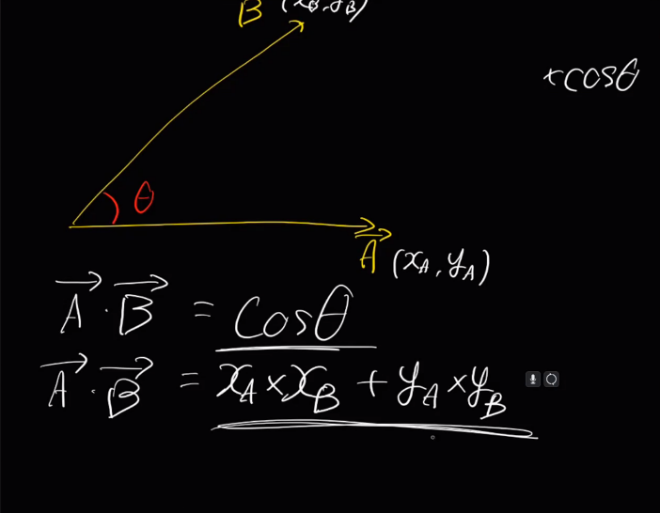 B (x_B, y_B)
×cosθ
θ
A⃗ (x_A, y_A)
A⃗ · B⃗ = cosθ
A⃗ · B⃗ = x_A × x_B + y_A × y_B